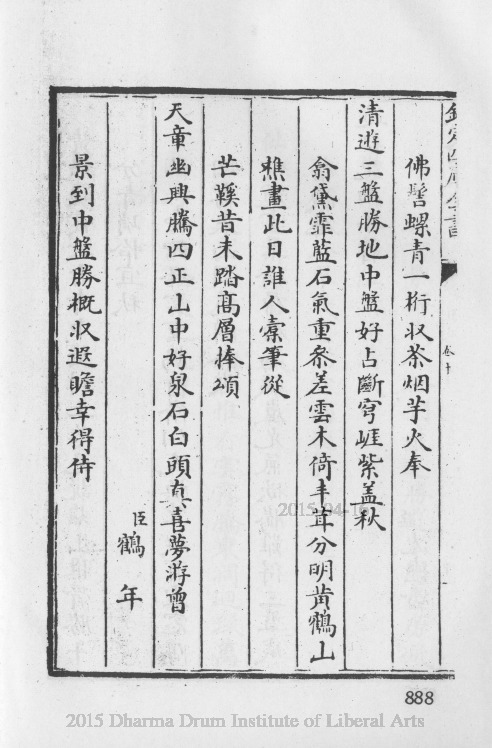 欽定四庫全書
卷十
佛髻螺青一桁収茶烟芋火奉
清遊三盤勝地中盤好占斷穹崖紫蓋秋
翕黛霏藍石氣重叅差雲木倚丰茸分明黄鶴山
樵畫此日誰人橐筆從
芒鞵昔未踏髙層捧頌
天章幽興騰四正山中好泉石白頭真喜夢游曾
臣鶴年
景到中盤勝概収遐瞻幸得侍
2015-04-16
888
2015 Dharma Drum Institute of Liberal Arts